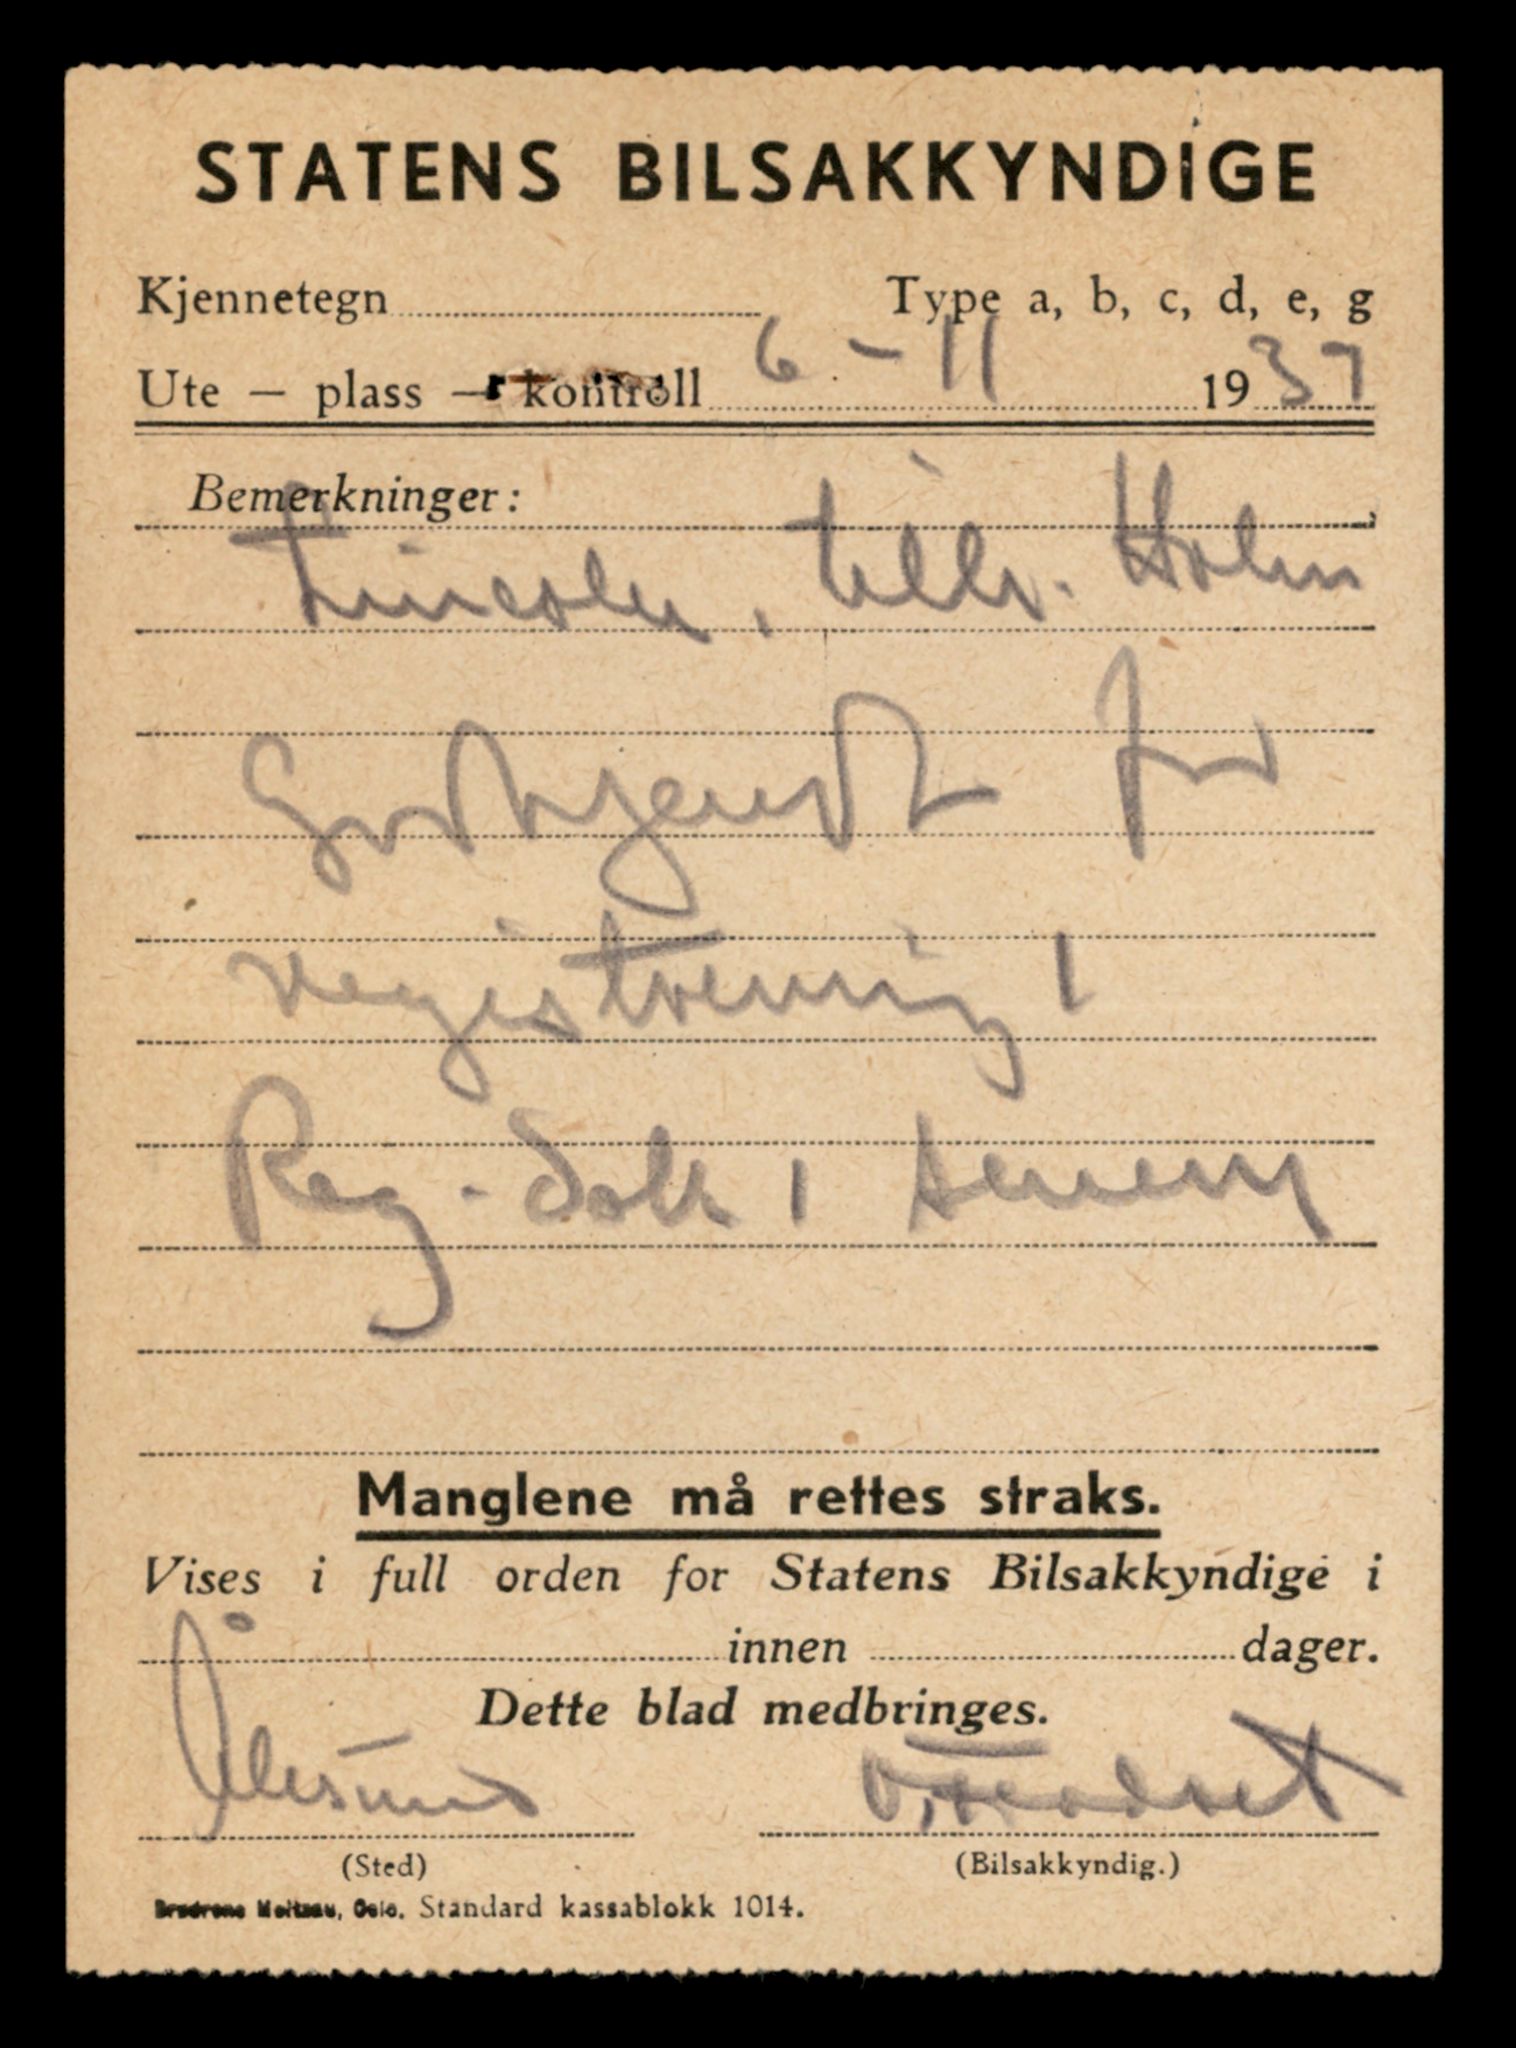 STATENS BILSAKKYNDIGE
Kjennetegn Type a, b, c, d, e, g
Ute — plass — kontroll 6 - 11 1937
Bemerkninger:
Lincoln, tilh. Holm
Godkjendt for
registrering!
Reg. Dok!
Manglene må rettes straks.
Vises i full orden for Statens Bilsakkyndige i
innen dager.
Dette blad medbringes.
Ålesund
(Sted) (Bilsakkyndig.)
Brødrene Meltzau, Oslo. Standard kassablokk 1014.